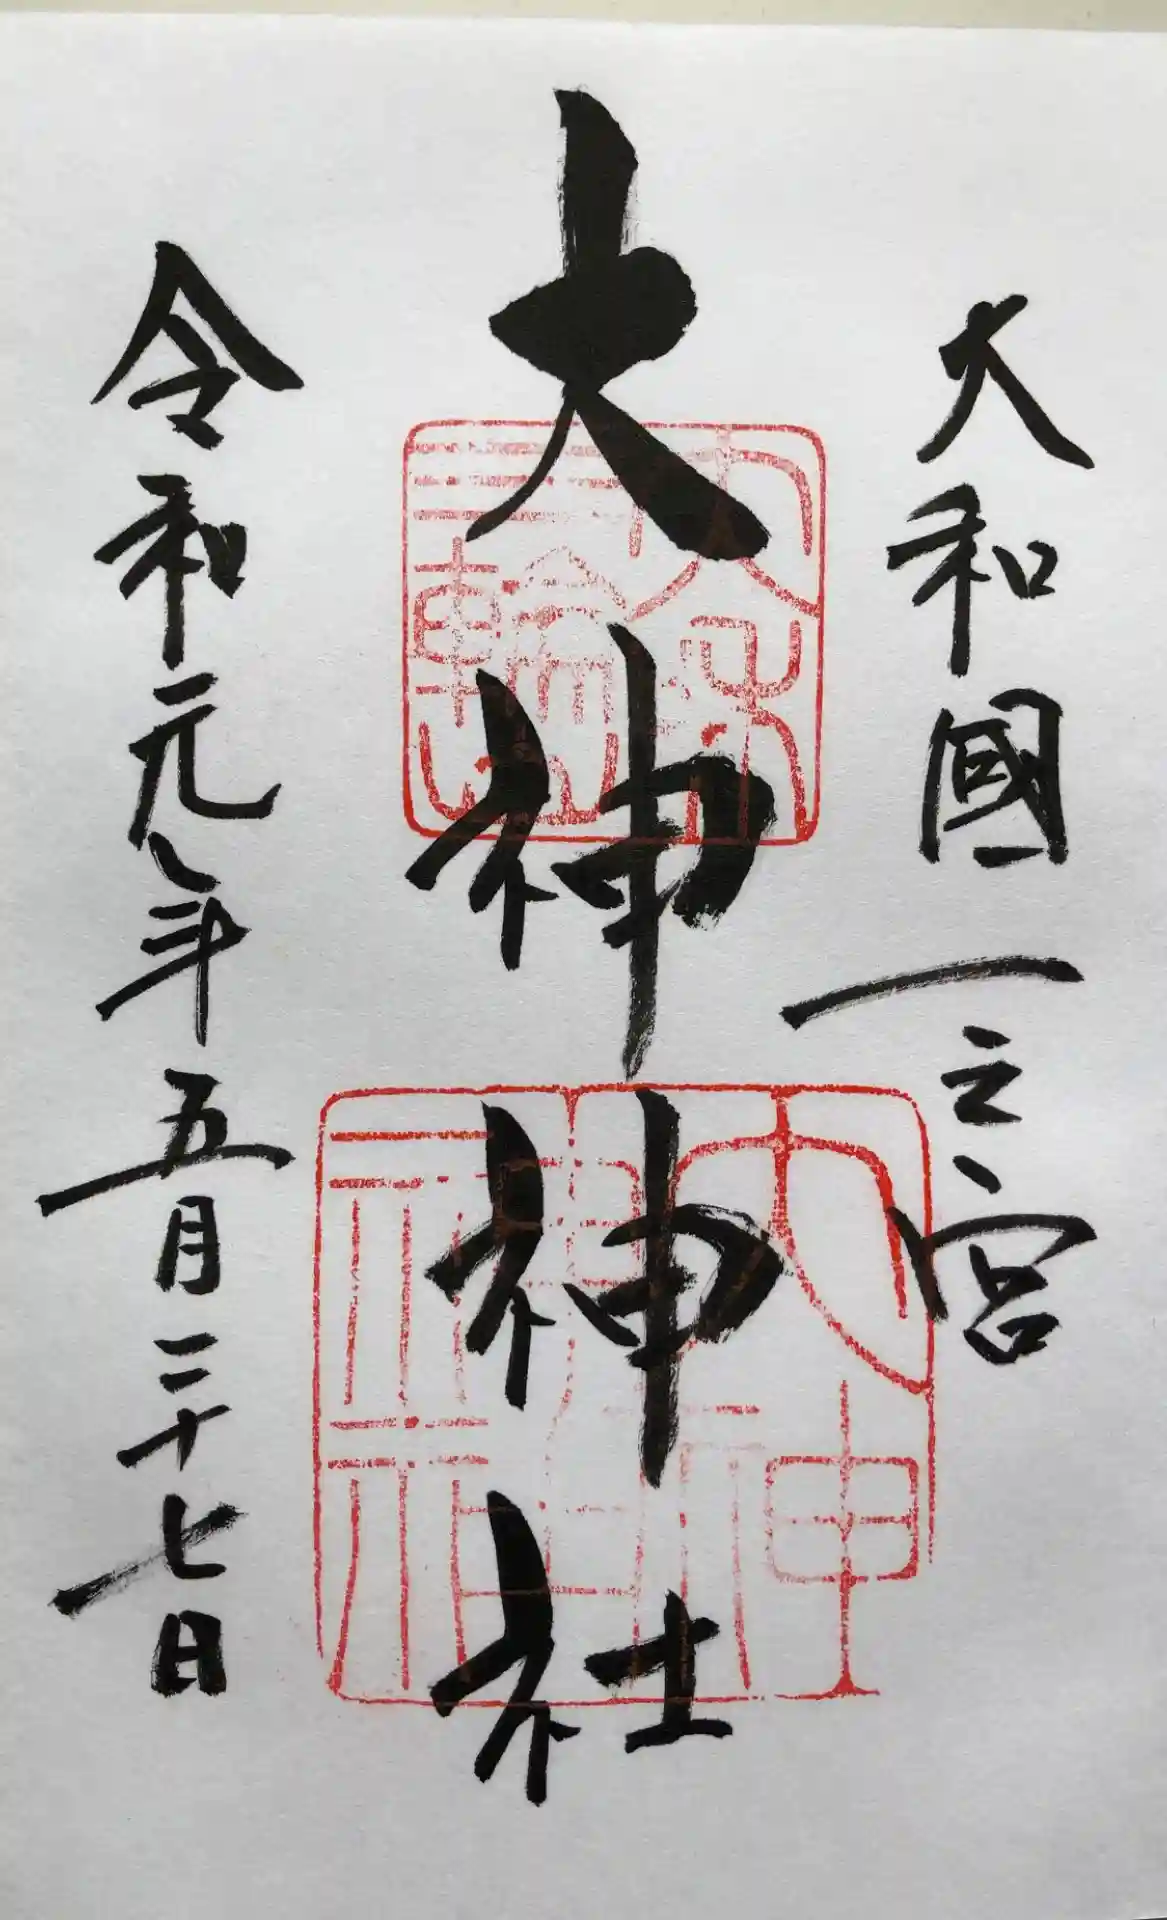 大和國一之宮
大神神社
令和元年五月二十七日
大神
神社